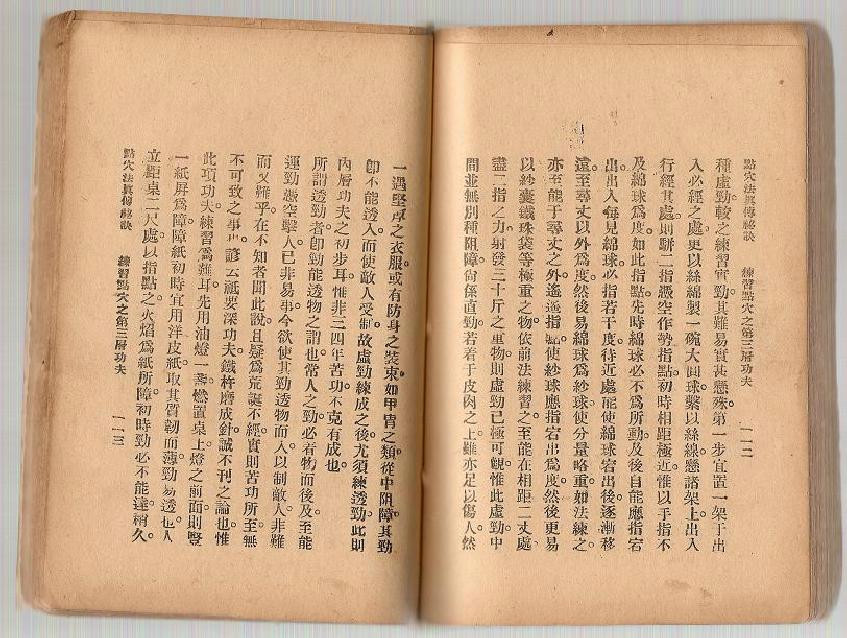 點穴法眞傳秘訣　練習點穴之第三層功夫　一一二
種虛勁較之練習實勁其難易實甚懸殊。第一步宜置一架于出
入必經之處更以絲綿製一碗大圓球繫以絲線懸諸架上。出入
行經其處則駢二指憑空作勢指點初時相距極近惟以手指不
及綿球爲度如此指點先時綿球必不爲所動及後自能應指宕
出。出入每見綿球必指若干度待近處能使綿球宕出後逐漸移
遠。至尋丈以外爲度然後易綿球爲紗球使分量略重如法練之。
亦至能于尋丈之外遙遙指點使紗球應指宕出爲度然後更易
以紗囊鐵珠袋等極重之物依前法練習之至能在相距二丈處
盡二指之力射發三十斤之重物則虛勁已極可觀惟此虛勁中
間並無別種阻障尙係直勁若着于皮肉之上雖亦足以傷人。然
一遇堅厚之衣服或有防身之裝束如甲冑之類從中阻障其勁
卽不能透入而使敵人受制。故虛勁練成之後尤須練透勁此則
內層功夫之初步耳惟非三四年苦功不克有成也。
所謂透勁者卽勁能透物之謂也常人之勁必着物而後及至能
運勁憑空擊人已非易事今欲使其勁透物而入以制敵人非難
而又難乎在不知者聞此說且疑爲荒誕不經實則苦功所至無
不可致之事也諺云祗要深功夫鐵杵磨成針誠不刊之論也惟
此項功夫練習爲難耳先用油燈一盞燃置桌上燈之前面則豎
一紙屏爲障障紙初時宜用洋皮紙取其質韌而薄勁易透也人
立距桌二尺處以指點之火焰爲紙所障初時勁必不能達稍久。
點穴法眞傳秘訣　練習點穴之第三層功夫　一一三